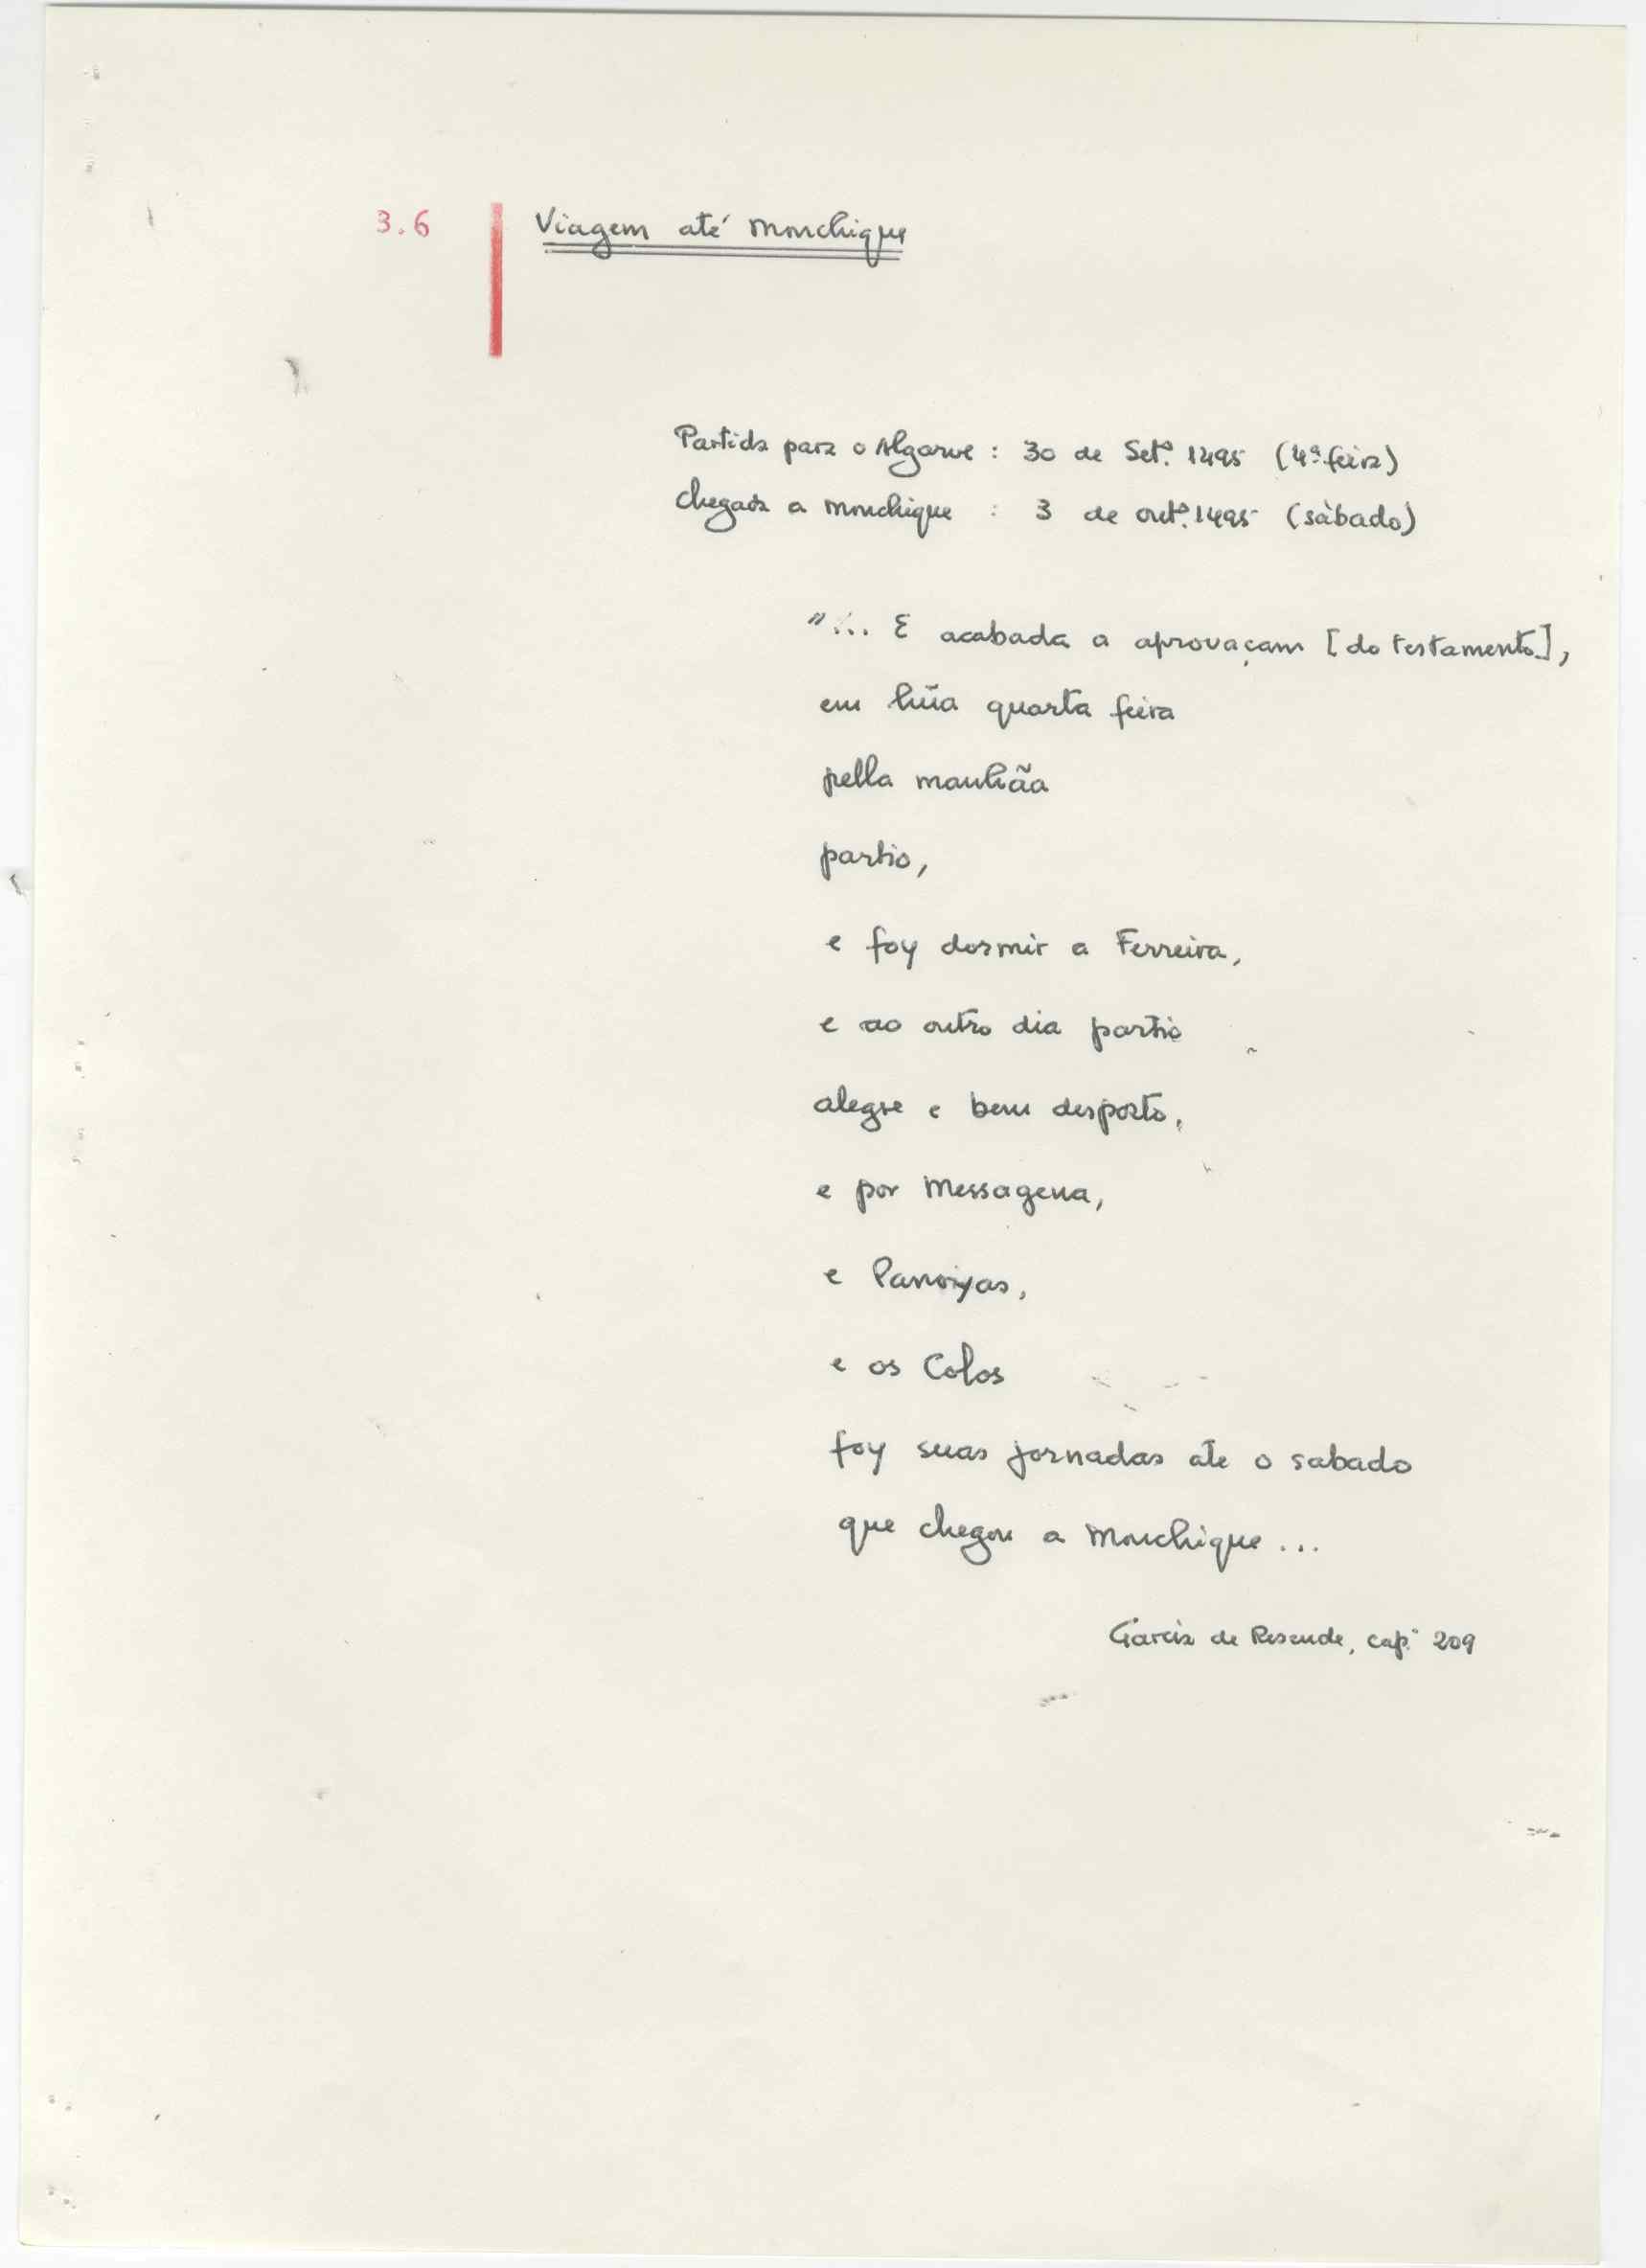 3.6 Viagem até Monchique
Partida para o Algarve : 30 de Setº. 1495 (4ª feira)
Chegada a Monchique : 3 de outº. 1495 (sàbado)
"... E acabada a aprovaçam [do testamento],
em hũa quarta feira
pella manhãa
partio,
e foy dormir a Ferreira,
e ao outro dia partio
alegre e bem desposto,
e por Messagena,
e Panoiyas,
e os Colos
foy suas jornadas ate o sabado
que chegou a Monchique ...
Garcia de Resende, capº 209